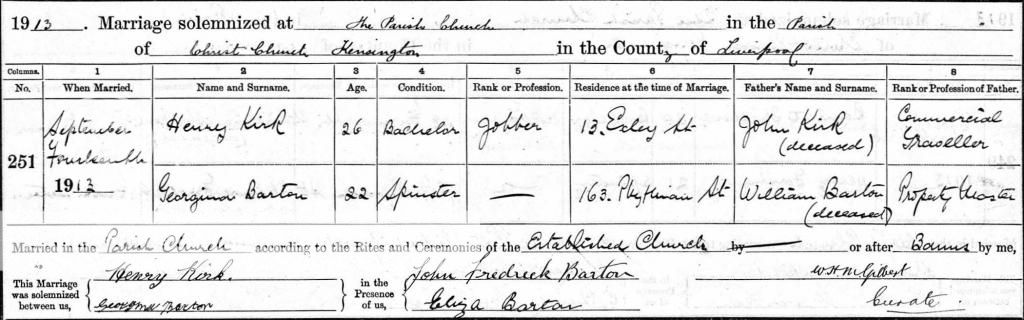 1913. Marriage solemnized at the Parish Church in the Parish
of Christ Church Kensington in the County of Liverpool
Columns. 1 2 3 4 5 6 7 8
No. When Married. Name and Surname. Age. Condition. Rank or Profession. Residence at the time of Marriage. Father's Name and Surname. Rank or Profession of Father.
251 September Fourteenth 1913
Henry Kirk 26 Bachelor Jobber 13. Exley St John Kirk (deceased) Commercial Traveller
Georgina Barton 22 Spinster — 163. Phythian St William Barton (deceased) Property Master
Married in the Parish Church according to the Rites and Ceremonies of the Established Church by — or after Banns by me,
This Marriage was solemnized between us, Henry Kirk. Georgina Barton in the Presence of us, John Fredrick Barton Eliza Barton
Curate.